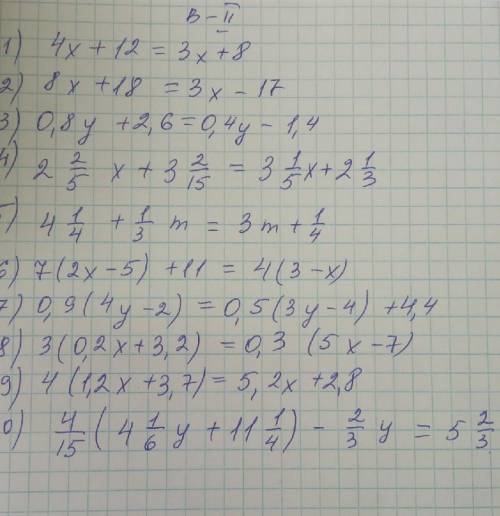 В-II
1) 4x + 12 = 3x + 8
2) 8x + 18 = 3x - 17
3) 0,8y + 2,6 = 0,4y - 1,4
4) 2 2/5 x + 3 2/15 = 3 1/5 x + 2 1/3
5) 4 1/4 + 1/3 m = 3m + 1/4
6) 7(2x - 5) + 11 = 4(3 - x)
7) 0,9(4y - 2) = 0,5(3y - 4) + 4,4
8) 3(0,2x + 3,2) = 0,3 (5x - 7)
9) 4(1,2x + 3,7) = 5,2x + 2,8
0) 4/15 (4 1/6 y + 11 1/4) - 2/3 y = 5 2/3